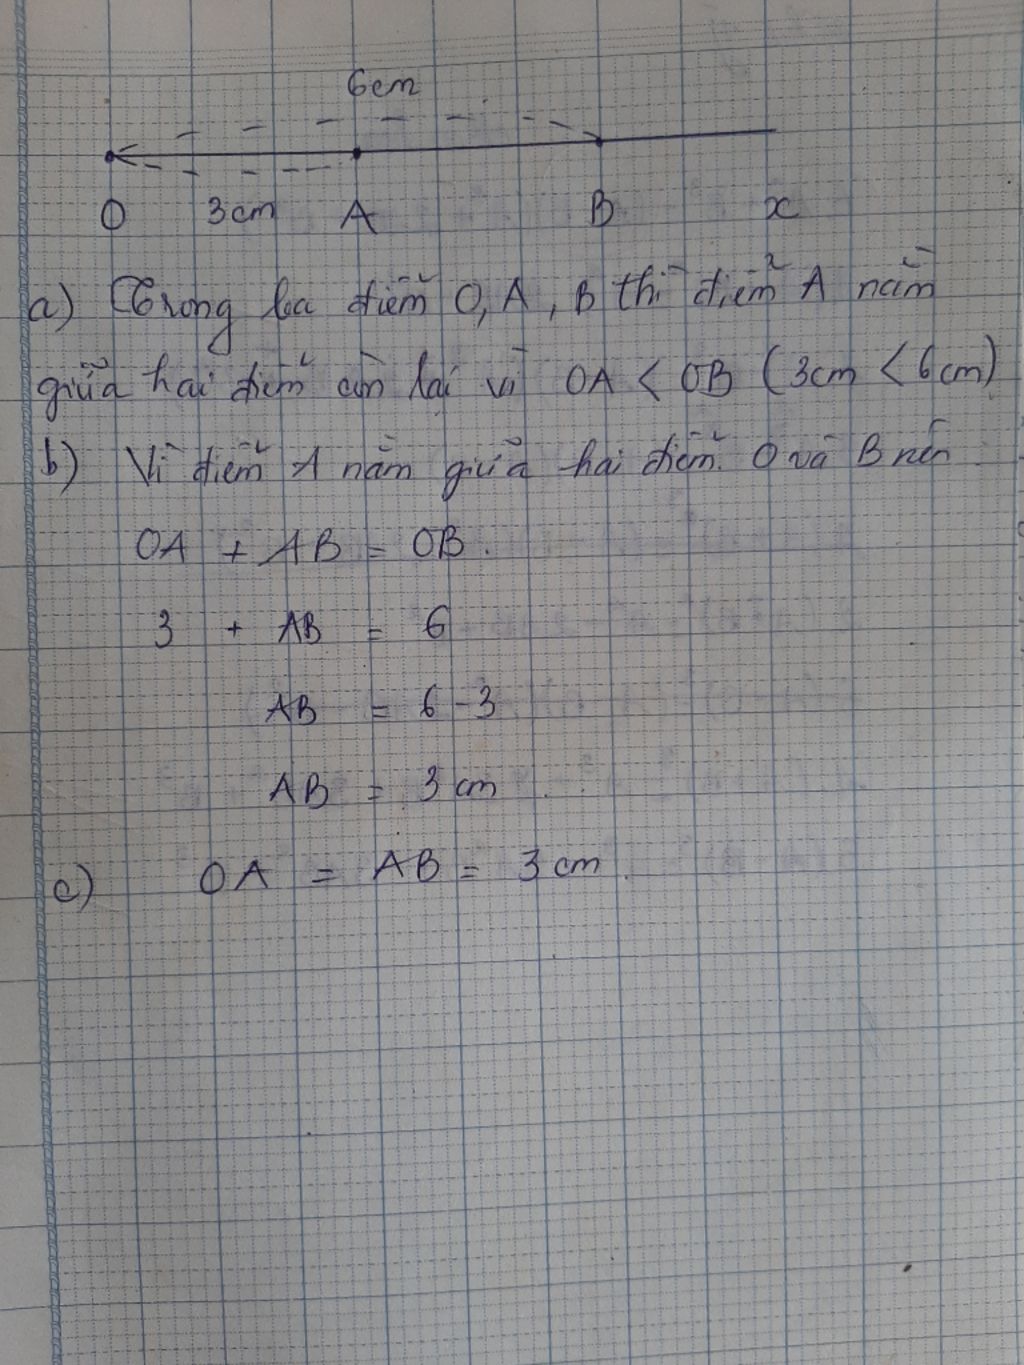 6cm
O 3cm A B x
a) Trong ba điểm O, A, B thì điểm A nằm
giữa hai điểm còn lại vì OA < OB (3cm < 6cm)
b) Vì điểm A nằm giữa hai điểm O và B nên
OA + AB = OB.
3 + AB = 6
AB = 6 - 3
AB = 3 cm
c) OA = AB = 3 cm.